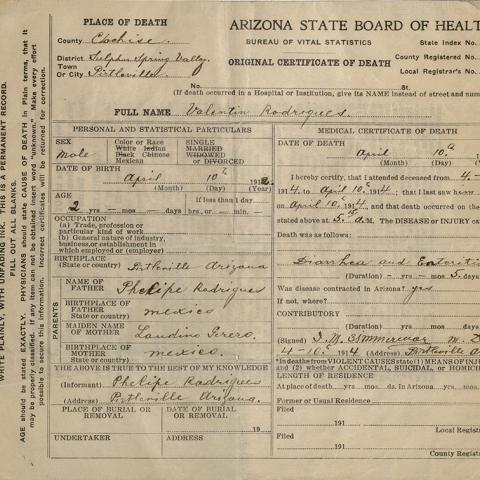 PLACE OF DEATH
ARIZONA STATE BOARD OF HEALT
County Cochise.
BUREAU OF VITAL STATISTICS
State Index No.
District Sulphur Spring Valley.
ORIGINAL CERTIFICATE OF DEATH
County Registered No.
Town
Or City Pirtleville.
Local Registrar's No.
No. St.
(If death occurred in a Hospital or Institution, give its NAME instead of street and num
FULL NAME Valentin Rodrigues.
PERSONAL AND STATISTICAL PARTICULARS
SEX
male
Color or Race
White Indian
Black Chinese
Mexican
SINGLE
MARRIED
WIDOWED
or DIVORCED
DATE OF BIRTH
April 10th 1912.
(Month) (Day) (Year)
AGE
2 yrs — mos — days
If less than 1 day
hrs. or min.
OCCUPATION
(a) Trade, profession or
particular kind of work
(b) General nature of industry,
business, or establishment in
which employed (or employer)
BIRTHPLACE
(State or country) Pirtleville Arizona
PARENTS
NAME OF
FATHER Phelipe Rodrigues
BIRTHPLACE OF
FATHER mexico
(State or country)
MAIDEN NAME
OF MOTHER
BIRTHPLACE OF
MOTHER mexico.
(State or country)
THE ABOVE IS TRUE TO THE BEST OF MY KNOWLEDGE
(Informant) Phelipe Rodrigues
(Address) Pirtleville Arizona.
PLACE OF BURIAL OR
REMOVAL
DATE OF BURIAL OR
REMOVAL
19
UNDERTAKER
ADDRESS
MEDICAL CERTIFICATE OF DEATH
DATE OF DEATH
April 10th
(Month) (Day)
I hereby certify, that I attended deceased from 4-
1914 to April 10th 1914; that I last saw h
on April 10th 1914, and that death occurred on the
stated above at 5 A.M. The DISEASE or INJURY ca
Death was as follows:
Diarrhea and Enteritis
(Duration) — yrs — mos 5 days
Was disease contracted in Arizona? yes
If not, where?
CONTRIBUTORY
(Duration) yrs mos days
(Signed) M. D
4-10th 1914 (Address) Pirtleville A
*In deaths from VIOLENT CAUSES state (1) MEANS OF INJU
and (2) whether ACCIDENTAL, SUICIDAL, or HOMICID
LENGTH OF RESIDENCE
At place of death yrs mos ds. In Arizona yrs mos.
Former or Usual Residence
Filed 191
Local Registr
Filed 191
County Regist
WRITE PLAINLY, WITH UNFADING INK. THIS IS A PERMANENT RECORD.
FILL OUT ALL BLANKS.
AGE should be stated EXACTLY. PHYSICIANS should state CAUSE OF DEATH in Plain terms, that it
may be properly classified. If any item can not be obtained insert word "unknown." Make every effort
possible to secure this information. Incorrect certificates will be returned for correction.